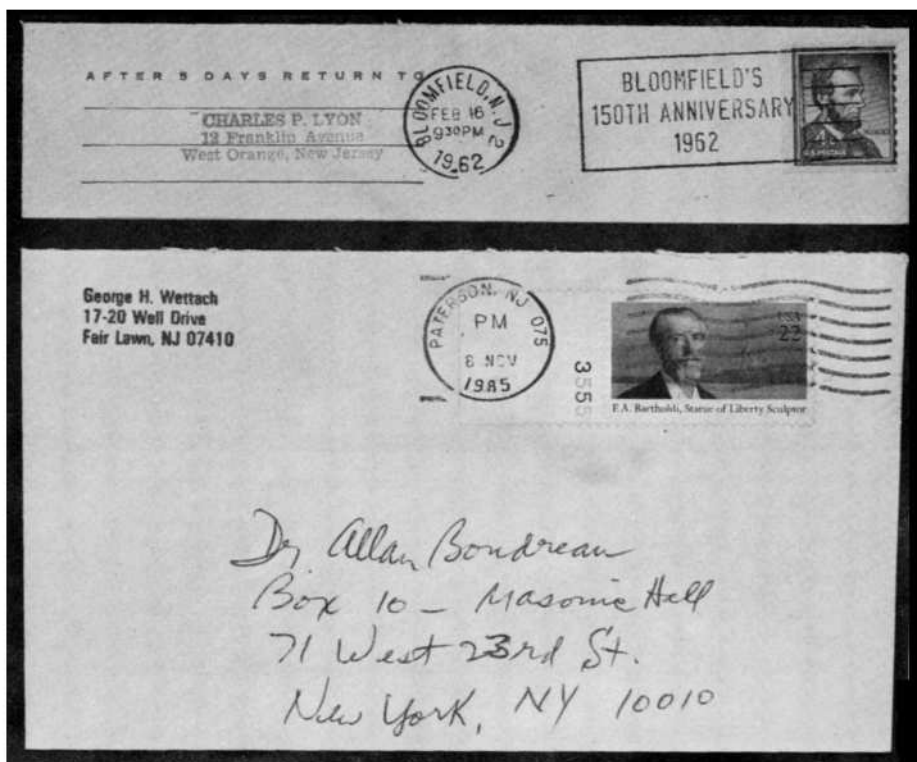 AFTER 5 DAYS RETURN TO
CHARLES P. LYON
12 Franklin Avenue
West Orange, New Jersey
BLOOMFIELD, N.J. 2
FEB 16
930PM
1962
BLOOMFIELD'S
150TH ANNIVERSARY
1962
George H. Wettach
17-20 Well Drive
Fair Lawn, NJ 07410
PATERSON, NJ 075
PM
8 NOV
1985
3555
USA
22
F.A. Bartholdi, Statue of Liberty Sculptor
Dr Allan Boudreau
Box 10 - Masonic Hall
71 West 23rd St.
New York, NY 10010